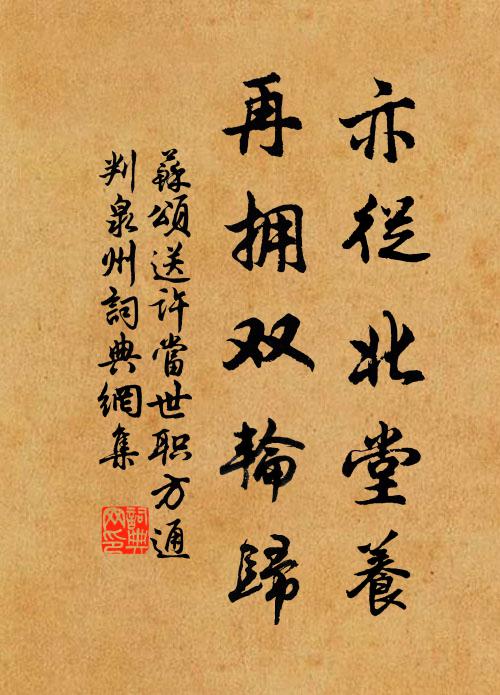 亦從北堂養
再拥双輪歸
蘇頌送许當世职方通
判泉州詞典網集
詞典